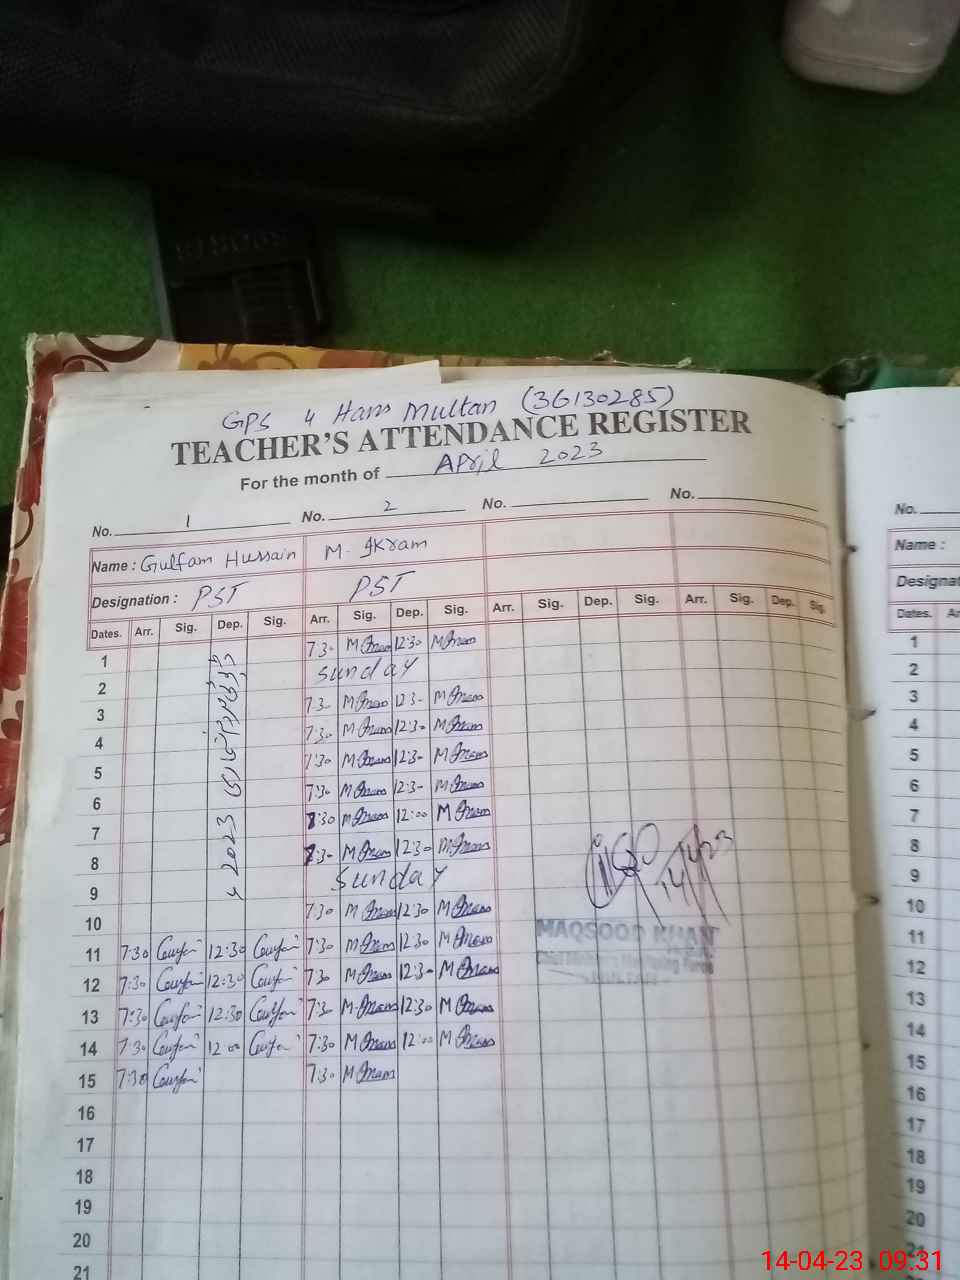 GPS 4 Hans Multan (36130285)
TEACHER'S ATTENDANCE REGISTER
For the month of April 2023
No. 1 No. 2 No. No.
Name : Gulfam Hussain M. Ikram
Designation : PST PST
Dates. Arr. Sig. Dep. Sig. Arr. Sig. Dep. Sig. Arr. Sig. Dep. Sig. Arr. Sig. Dep. Sig.
1 7:30 12:30
2 Sunday
3 7:30 12:30
4 7:30 12:30
5 7:30 12:30
6 7:30 12:30
7 7:30 12:00
8 7:30 12:30
9 Sunday
10 7:30 12:30
11 7:30 12:30 7:30 12:30
12 7:30 12:30 7:30 12:30
13 7:30 12:30 7:30 12:30
14 7:30 12:00 7:30 12:00
15 7:30 7:30
16
17
18
19
20
21
2023
14/4/23
MAQSOOD KHAN
Chief Minister's Monitoring Force
MULTAN
No.
Name :
Designat
Dates. Ar
1
2
3
4
5
6
7
8
9
10
11
12
13
14
15
16
17
18
19
20
21
14-04-23 09:31